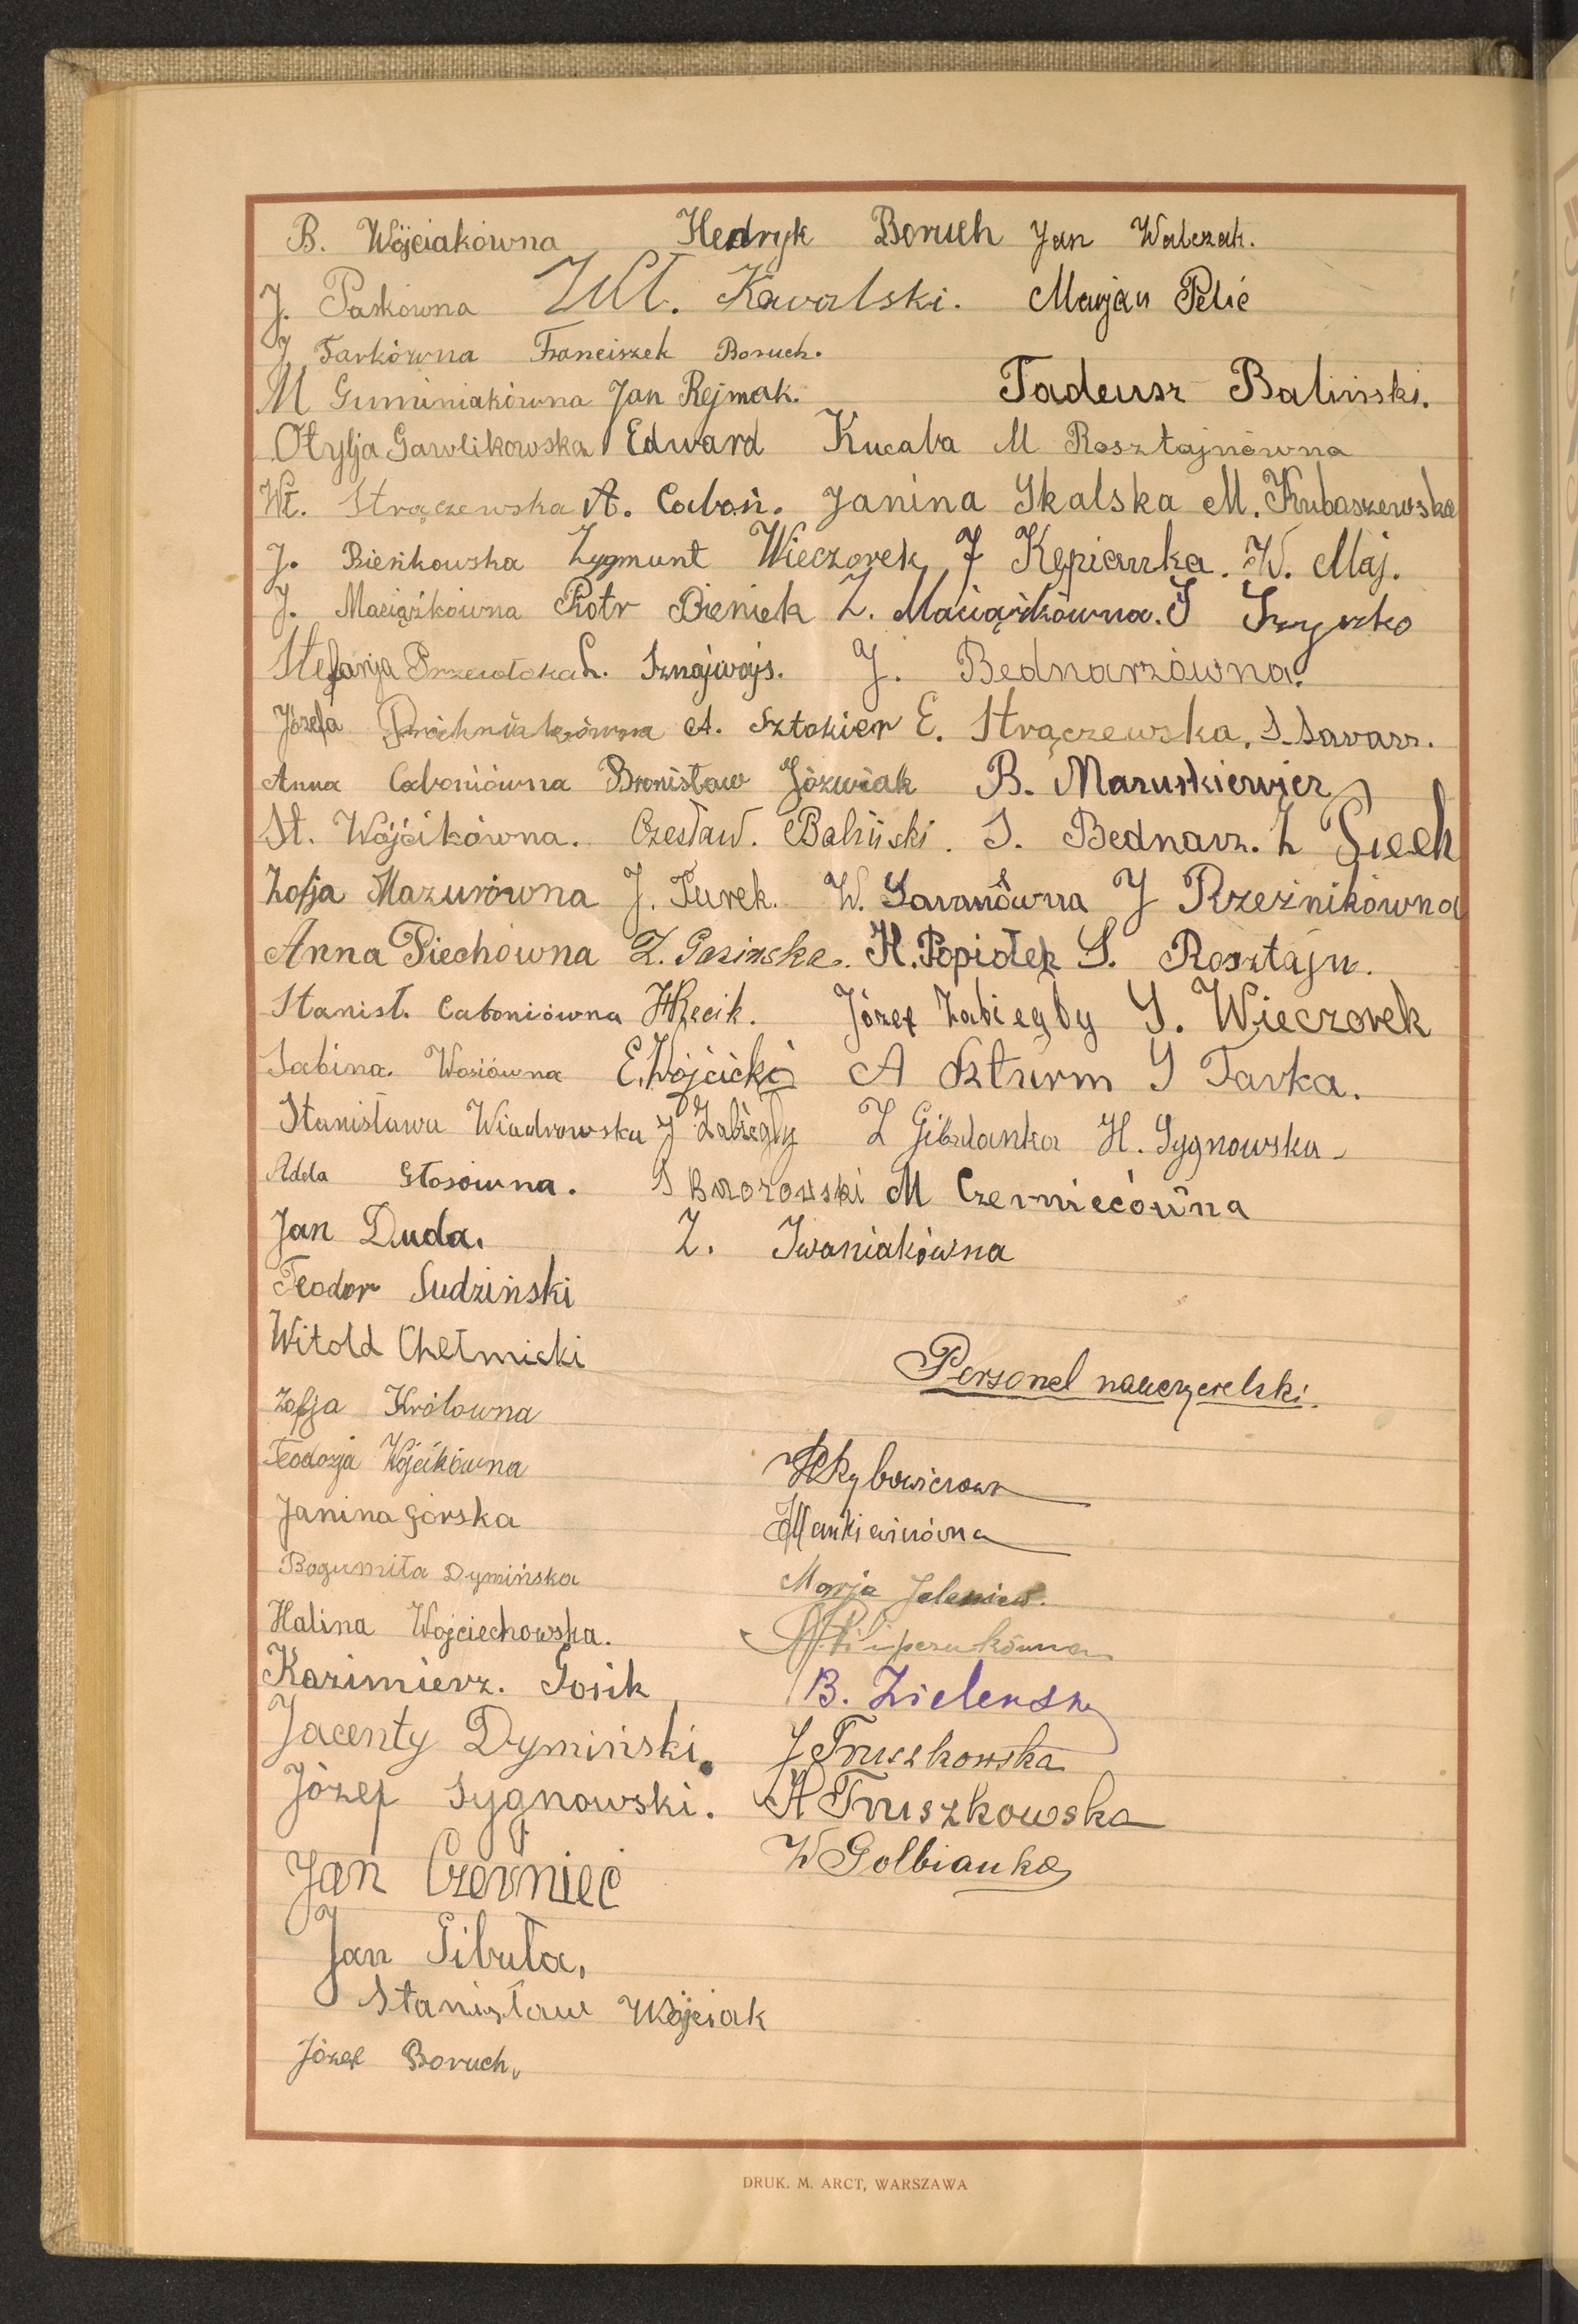 B. Wójciakówna Hedryk Boruch Jan Walczak.
J. Paskówna Wł. Kowalski. Marjan Pelic
J Tarkówna Franciszek Boruch.
M Guminiakówna Jan Rejmak. Tadeusz Baliński.
Otylja Gawlikowska Edward Kucaba M Rosztajnówna
Wł. Strączewska A. Caboń. Janina Skalska M. Kubaszewska
J. Bieńkowska Zygmunt Wieczorek J Kępianka. W. Maj.
J. Maciążkówna Piotr Bieniek Z. Maciążkówna. S Szyszko
Stefanja Przewłoka L. Sznajwajs. J. Bednarzówna.
Józefa A. Sztokier E. Strączewska, S. Sawarz.
Anna Caboniówna Bronisław Jóźwiak B. Maruszkiewicz
St. Wójcikówna. Czesław. Baliński. S. Bednarz. Z Piech
Zofja Mazurówna J. Turek. W. J Rzeźnikówna
Anna Piechówna Z. Gasinska. H. Popiołek S. Rosztajn.
Stanisł. Caboniówna Józef Zabiegły S. Wieczorek
Sabina. Wosiówna E. Wójcicki A Szturm S Tarka.
Stanisława Wiadrowska J Zabiegły Z Gibulanka H. Sygnowska
Adela Głosówna. S Borowski M Czerniecówna
Jan Duda. Z. Iwaniakówna
Teodor Sudziński
Witold Chełmicki
Personel nauczycielski.
Zofja Królówna
Teodozja Wójcikówna
Janina Górska
Mankiewiczówna
Bogumiła Dymińska
Marja
Halina Wojciechowska.
Kazimierz. Gosik
B. Zielensky
Jacenty Dymiński.
J Truszkowska
Józef Sygnowski.
A Truszkowska
W Golbianka
Jan Czerniec
Jan Gibuła,
Stanisław Wójciak
Józef Boruch,
DRUK. M. ARCT, WARSZAWA